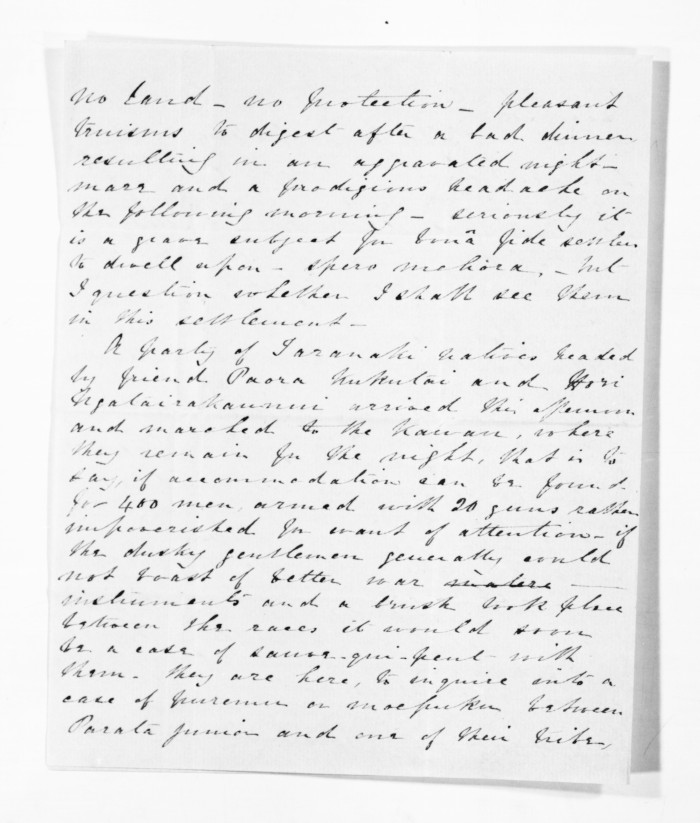 no land – no protection – pleasant
truisms to digest after a bad dinner
resulting in an aggravated night-
mare and a prodigious headache on
the following morning – seriously it
is a grave subject for bonâ fide settlers
to dwell upon – spero meliora, – but
I question whether I shall see them
in this settlement –
A party of Taranaki natives headed
by friend Paora Kukutai and Hori
Ngatairakaunui arrived this afternoon
and marched to the Kawau, where
they remain for the night, that is to
say, if accommodation can be found
for 400 men, armed with 20 guns rather
impoverished for want of attention – if
the dusky gentlemen generally could
not boast of better war
instruments and a brush took place
between the races it would soon
be a case of sauve-qui-peut with
them – they are here, to inquire into a
case of puremu or moepuku between
Parata junior and one of their tribe,